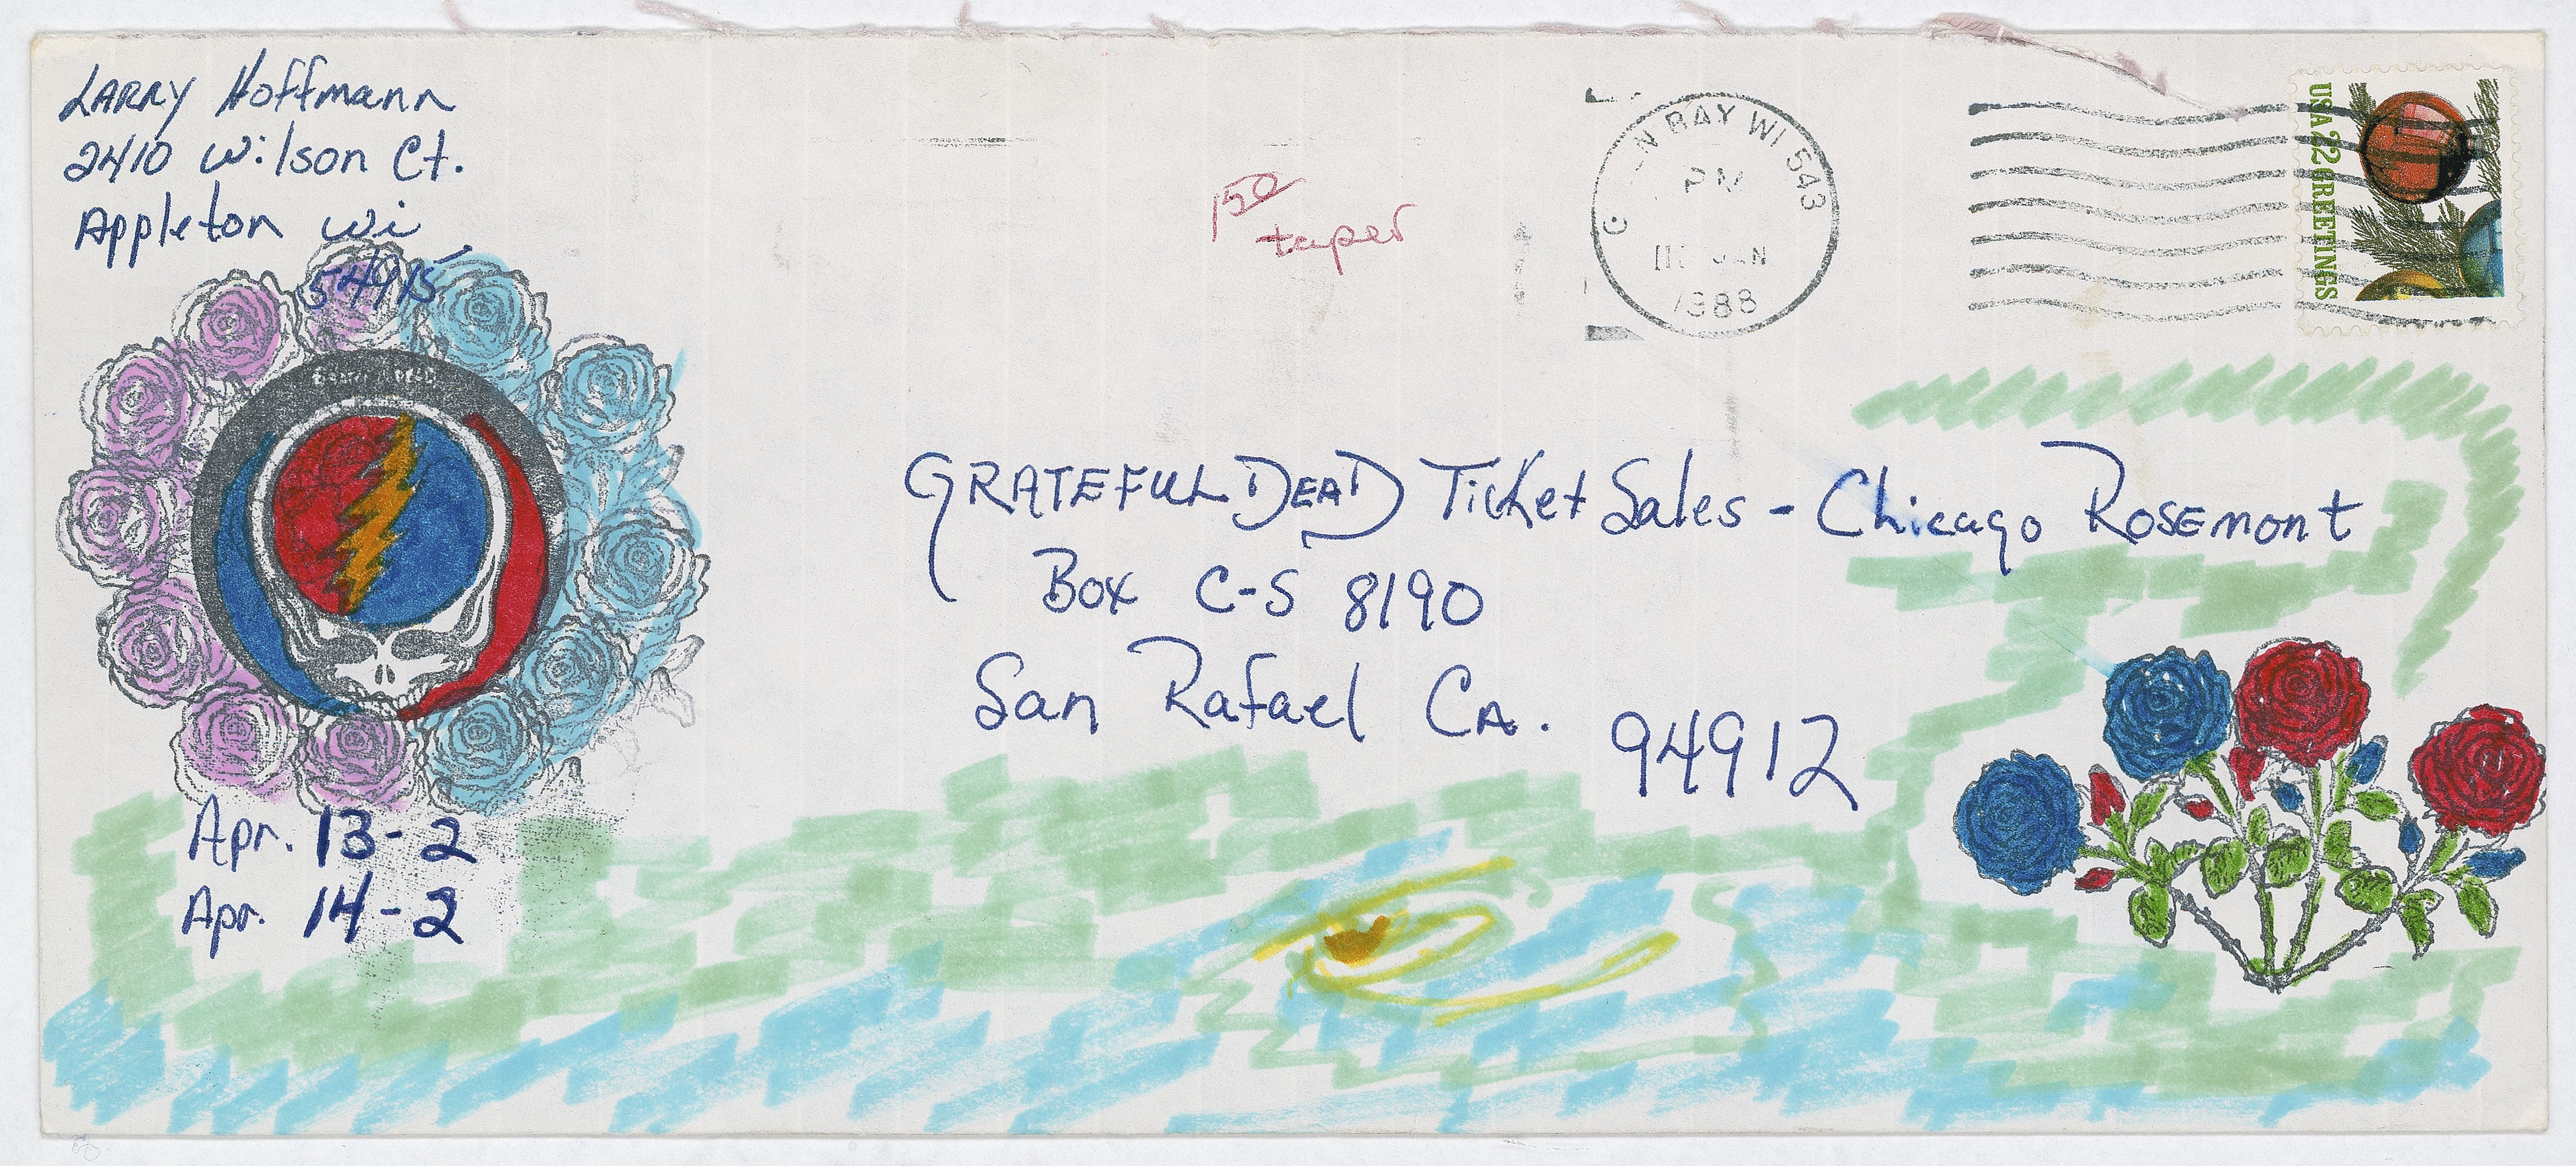 LARRY Hoffmann
2410 Wilson Ct.
Appleton Wi
54915
Apr. 13-2
Apr. 14-2
150
taper
N BAY WI 543
PM
JAN
1988
USA 22 GREETINGS
GRATEFUL DEAD Ticket Sales - Chicago Rosemont
Box C-S 8190
San Rafael CA.
94912